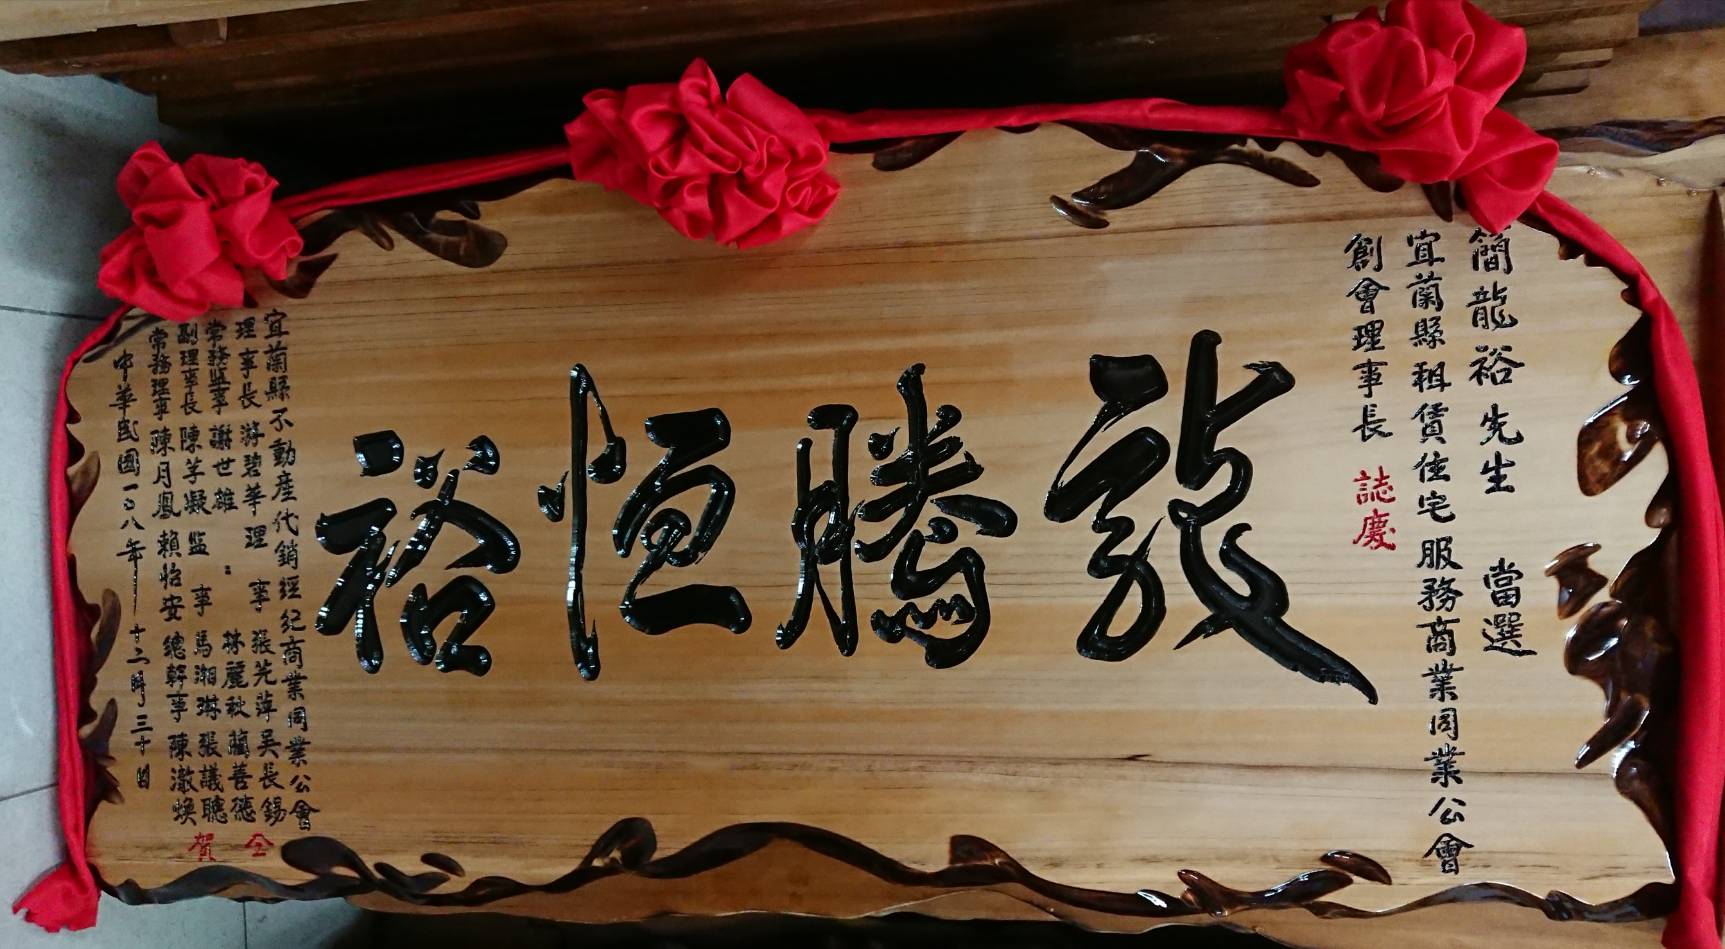 簡龍裕先生 當選
宜蘭縣租賃住宅服務商業同業公會
創會理事長 誌慶
龍騰恒裕
宜蘭縣不動產代銷經紀商業同業公會
理事長 游碧華 理事 張芫萍 吳長錫 仝
常務監事 謝世雄 : 林麗秋 藺善德
副理事長 陳芓凝 監事 馬湘琳 張議聰 賀
常務理事 陳月鳳 賴怡安 總幹事 陳澈煥
中華民國一0八年十二月三十日